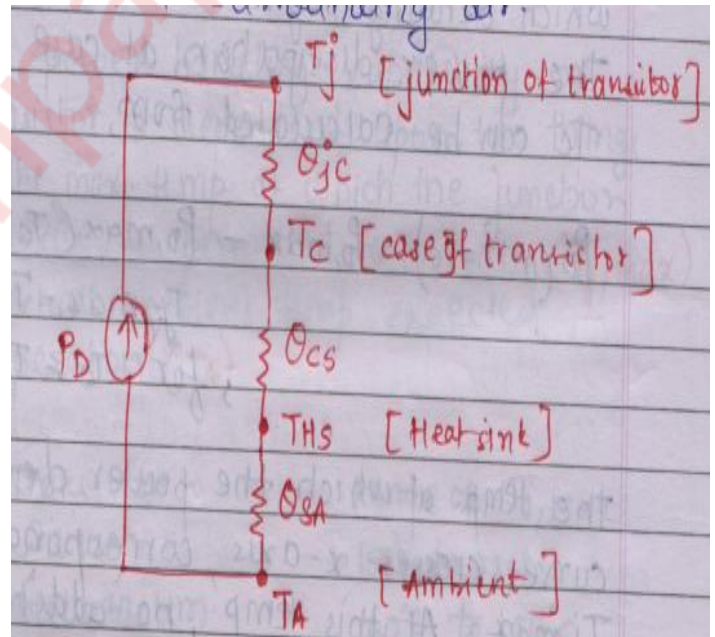 surrounding air.
Tj [junction of transistor]
θjC
TC [case of transistor]
PD
θCS
THS [Heat sink]
θSA
TA [Ambient]